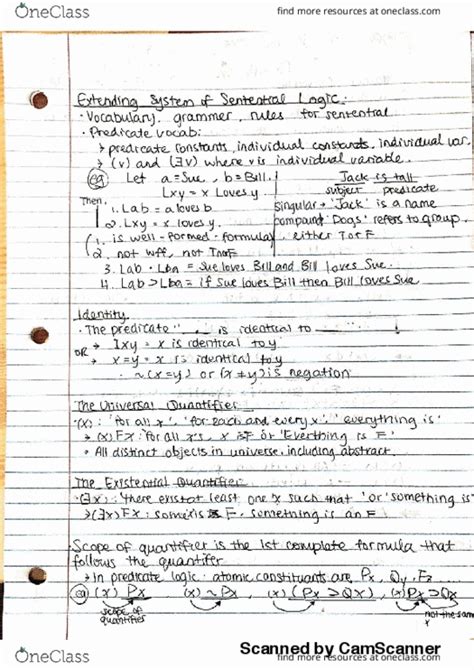 OneClass
find more resources at oneclass.com
Extending System of Sentential Logic:
· Vocabulary, grammer, rules for sentential
· Predicate vocab:
> predicate constants, individual constants, individual var.
> (v) and (∃v) where v is individual variable.
eg Let a = Sue, b = Bill. Jack is tall
Lxy = x Loves y. subject predicate
Then, singular → 'Jack' is a name
1. Lab = a loves b. compound 'Dogs' refers to group.
2. Lxy = x loves y.
(1. is well-formed-formula) either T or F
2. not wff, not T or F
3. Lab · Lba = Sue loves Bill and Bill loves Sue.
4. Lab > Lba = if Sue loves Bill then Bill loves Sue
Identity
· The predicate " is identical to
> Ixy = x is identical to y
OR > x = y = x is identical to y
~(x=y) or (x≠y) is negation
The Universal Quantifier
·(x): 'for all x', 'for each and every x', 'everything is'
> (x)Fx: 'for all x's, x is F or 'Everthing is F'
· All distinct objects in universe, including abstract.
The Existential Quantifier
·(∃x): 'there exist at least one x such that' or 'something is'
> (∃x)Fx: some x is F, something is an F
Scope of quantifier is the 1st complete formula that
follows the quantifer
> in predicate logic, atomic constituants are Px, Qy, Fz
eg (x) Px (x) ~Px, (x)(Px > Qx) (x)Px > Qx
scope of quantifies not the same x
Scanned by CamScanner
OneClass
find more resources at oneclass.com